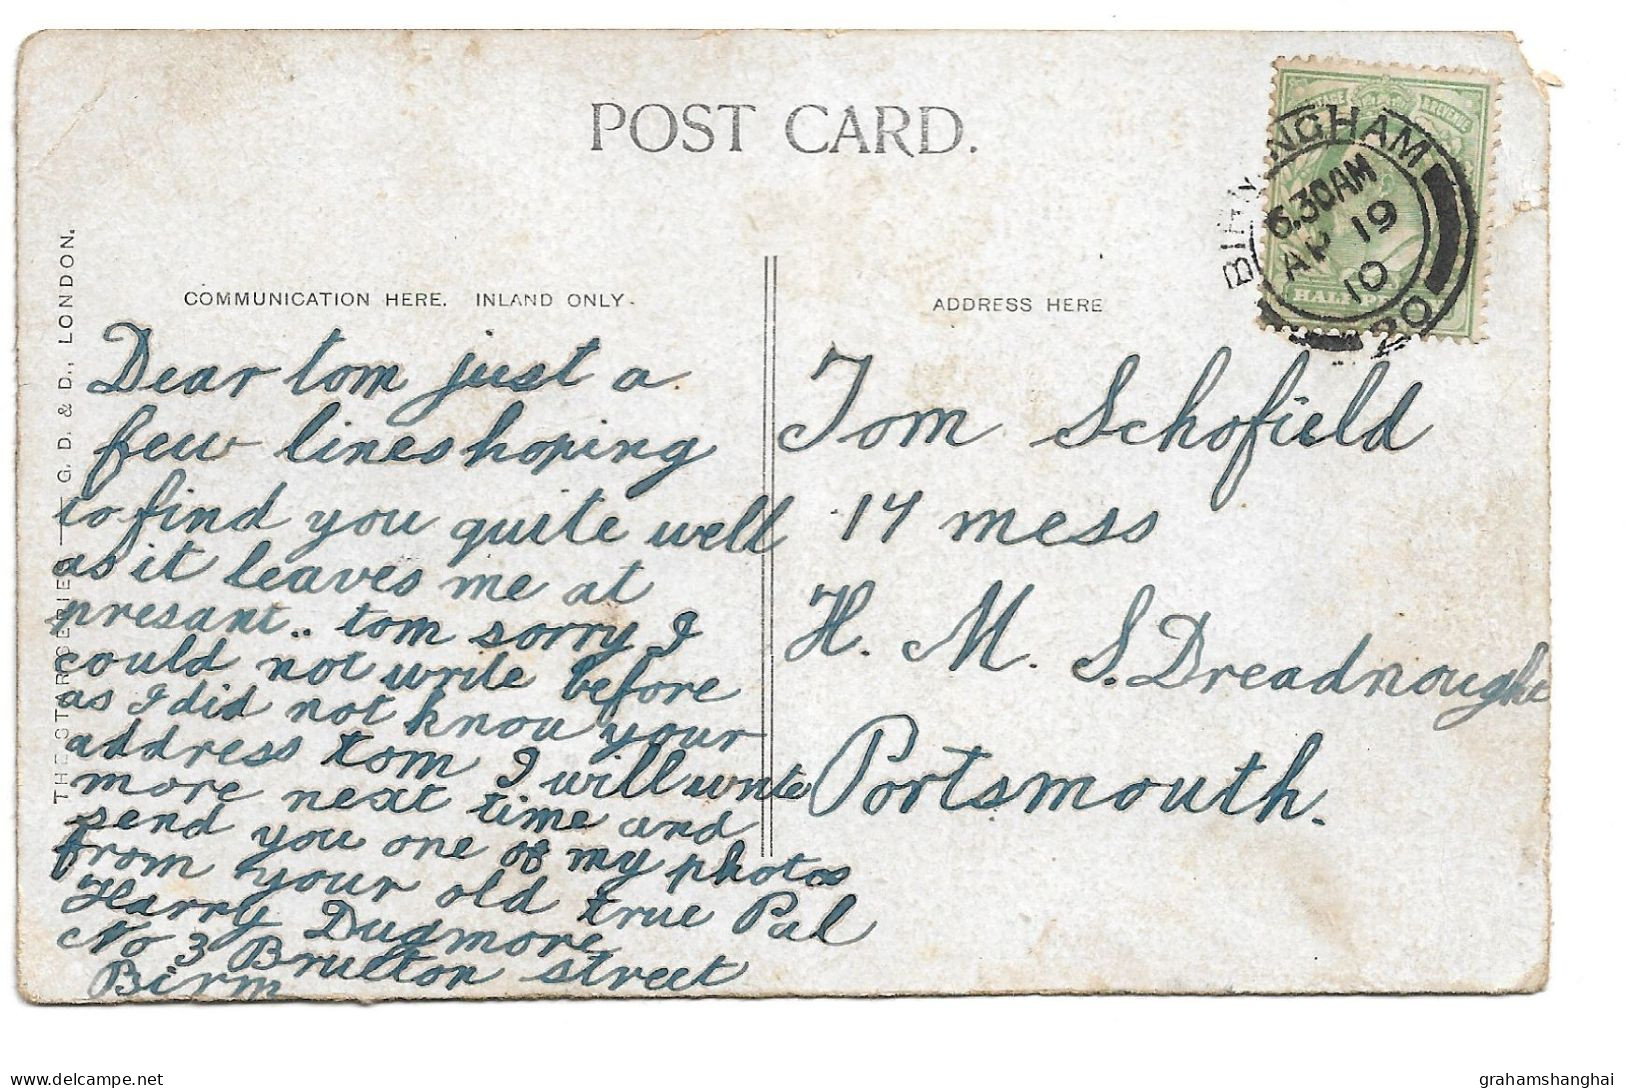 POST CARD.
COMMUNICATION HERE. INLAND ONLY.
ADDRESS HERE
THE STAR SERIES — G. D. & D., LONDON.
BIRMINGHAM
6.30AM
AP 19
10
20
HALFPENNY
Dear tom just a
few lines hoping
to find you quite well
as it leaves me at
presant.. tom sorry I
could not write before
as I did not know your
address tom I will write
more next time and
send you one of my photos
from your old true Pal
Harry Dugmore
No 3 Brueton street
Birm
Tom Schofield
14 mess
H. M. S. Dreadnought
Portsmouth.
grahamshanghai